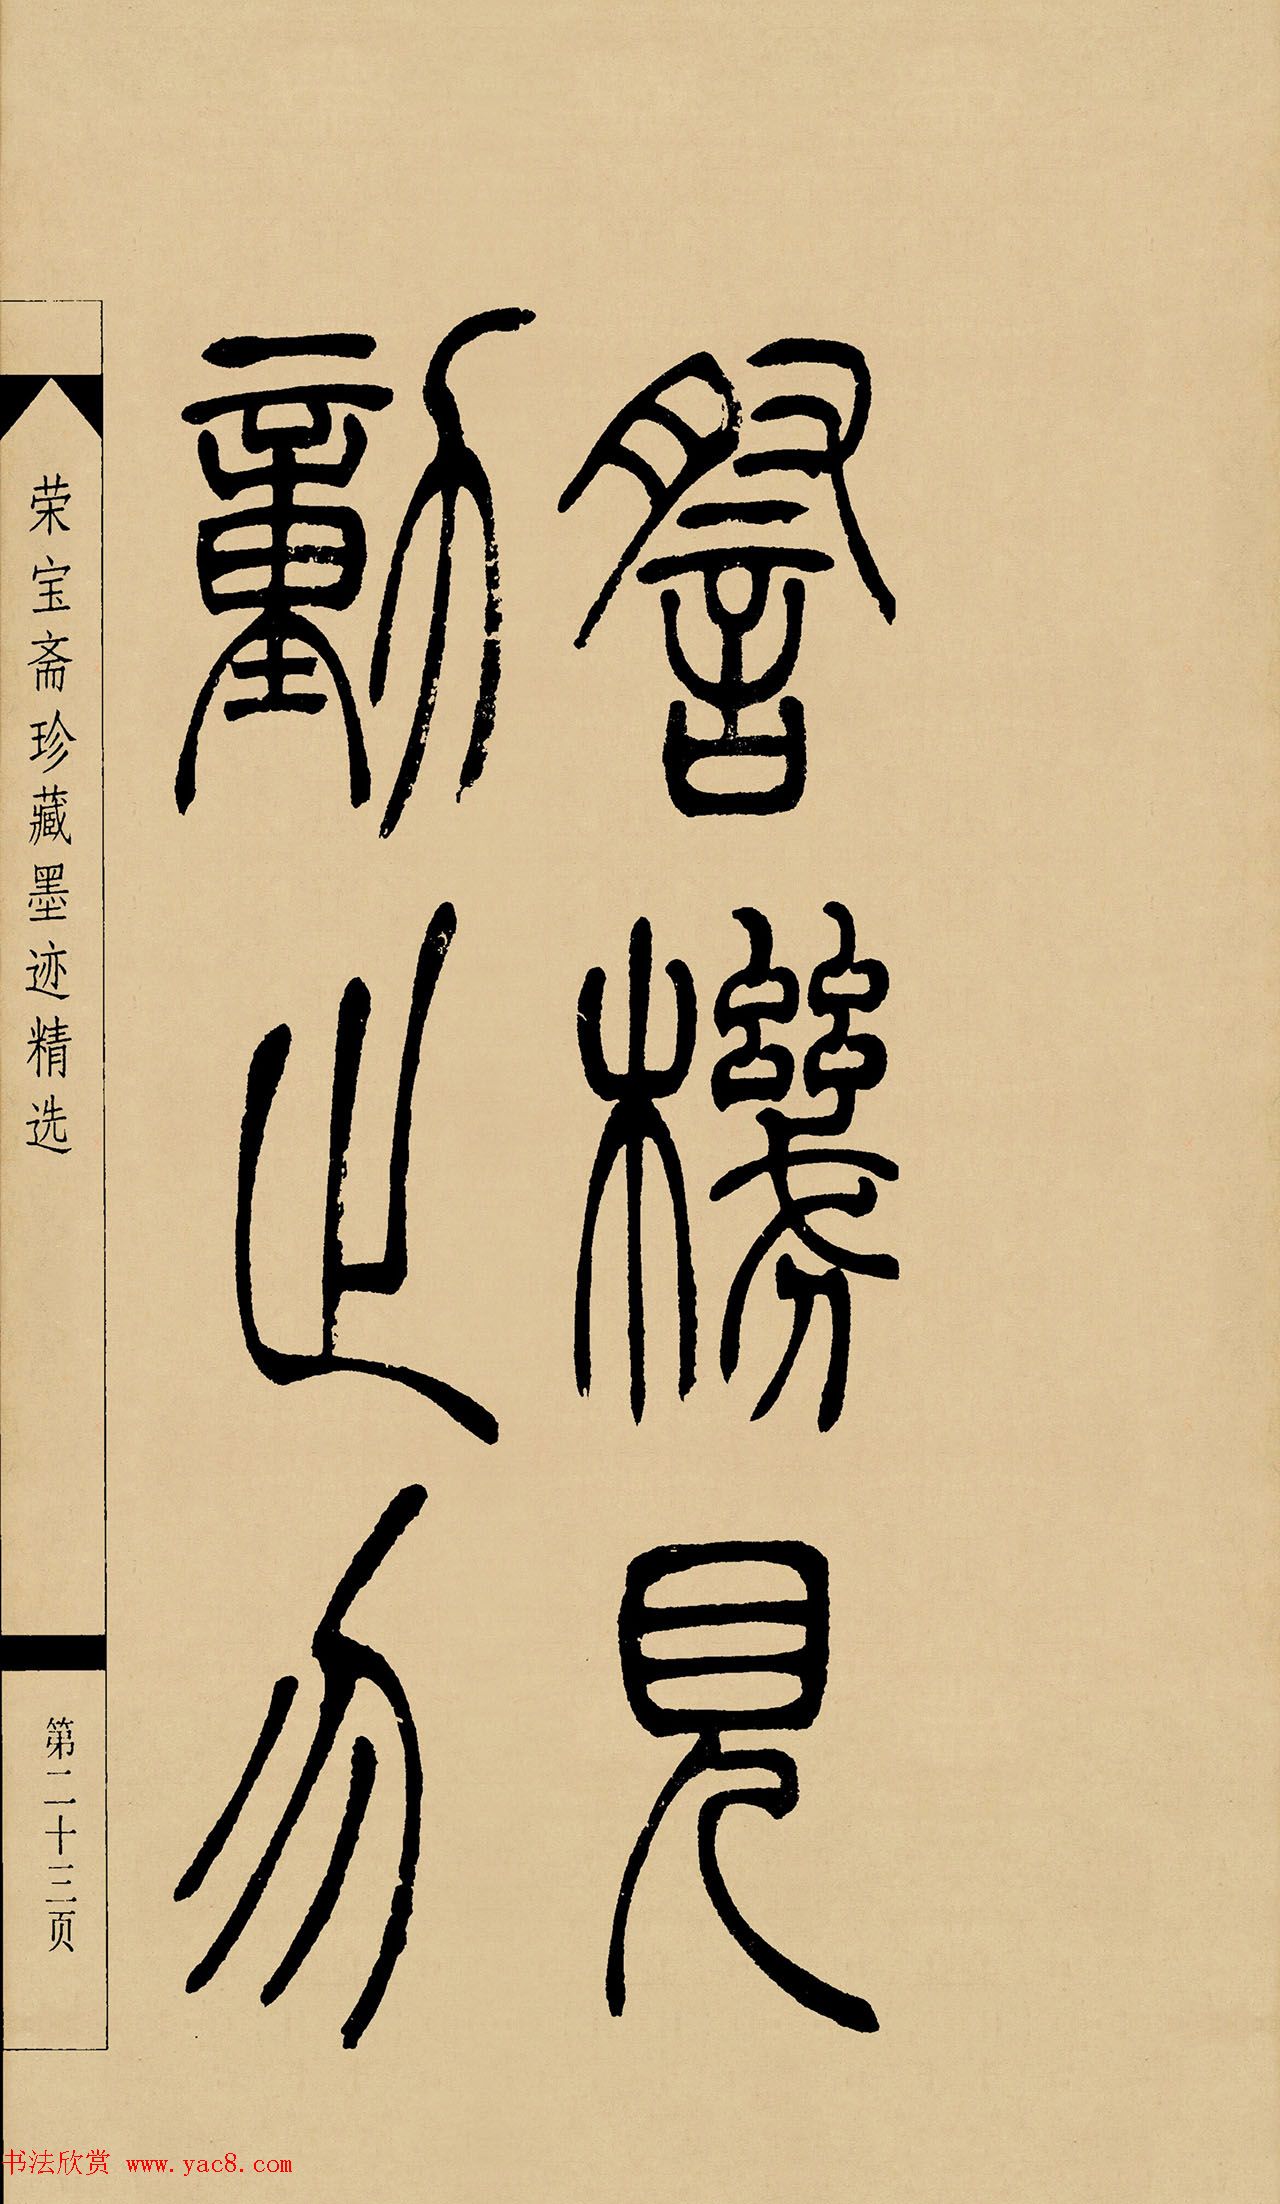 詧機見
動止勿
荣宝斋珍藏墨迹精选
第二十三页
书法欣赏 www.yac8.com